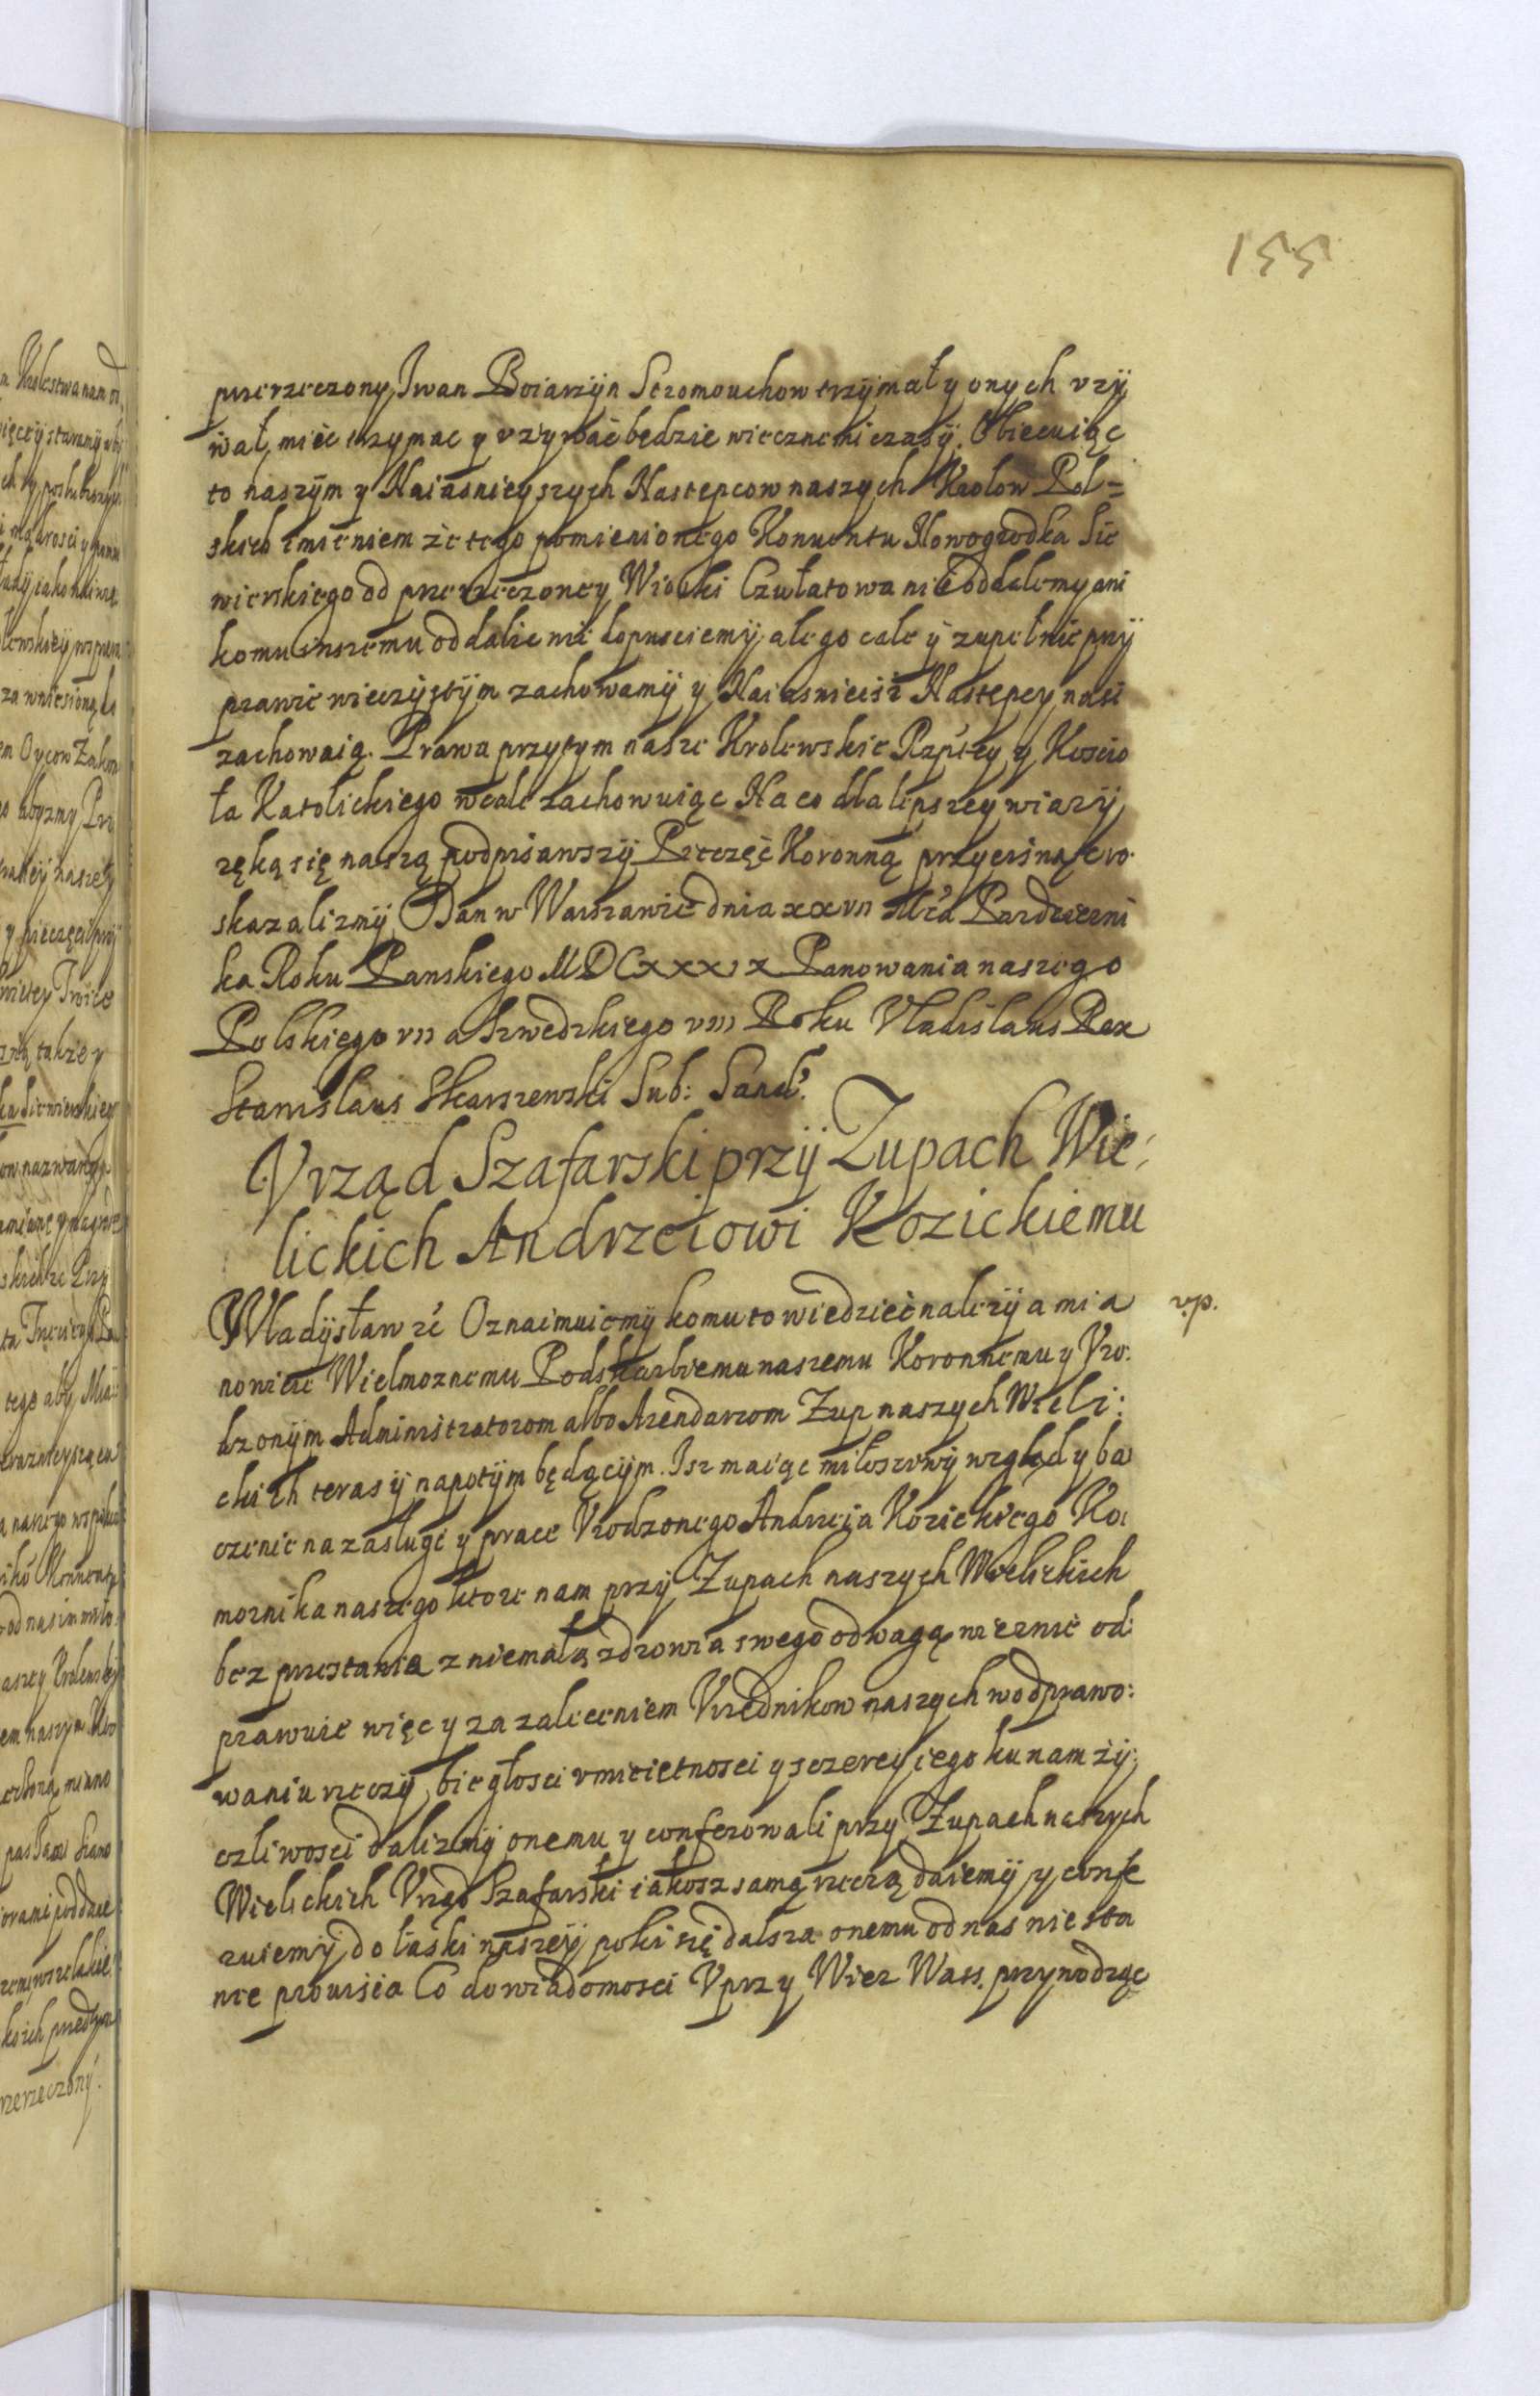 155
przerzeczony Iwan Boiarzyn Stromouchow trzÿmał y onych vzÿ
wał, mieć trzymac y vzywać będzie wiecznemi czasÿ. Obiecuiąc
to naszÿm y Naiasnieyszych Następcow naszych Krolow Pol=
skich imieniem że tego pomienionego Konuentu Nowogrodka Sie
wierskiego od przerzeczoney Wioski Czułatowa nie oddalemy ani
komu inszemu oddalic nie dopusciemÿ, ale go cale ÿ zupełnie przÿ
prawie wieczÿstÿm zachowamÿ y Naiasnieisi Nastepcy nasi
zachowaią. Prawa przytym nasze Krolewskie Rzptey y Koscio
ła Katolickiego wcale zachowuiąc Na co dla lepszey wiarÿ
ręką się naszą podpisawszÿ Pieczęć Koronną przycisnąć ro
skazalizmÿ Dan w Warszawie dnia xxvii Mca Pazdzierni
ka Roku Panskiego MDCxxxix Panowania naszego
Polskiego vii a Szwedzkiego viii Roku Vladislaus Rex
Stanislaus Skarszewski Sub: Sand:
Vrząd Szafarski przÿ Zupach Wie:
lickich Andrzeiowi Kozickiemu
Władÿsław ec Oznaimuiemÿ komu to wiedzieć nalezÿ a mia
nowicie Wielmoznemu Podskarbiemu naszemu Koronnemu y Vro:
dzonÿm Administratorom albo Arendarzom Zup naszych Wieli:
ckich teras ÿ napotÿm będącÿm. Isz maiąc miłosciwÿ wzgląd y ba
czenie na zasługi y prace Vrodzonego Andrzeia Kozickiego Ko:
mornika naszego ktore nam przÿ Zupach naszych Wielickich
bez przestania z niemałą zdrowia swego odwagą wiernie od:
prawuie więc y za zaleceniem Vrzednikow naszych w odprawo:
waniu rzeczÿ, biegłosci vmieiętnosci y sczerey iego ku nam żÿ:
czliwosci dalizmÿ onemu y conferowali przy Zupach naszych
Wielickich Vrząd Szafarski iakosz samą rzeczą daiemÿ y confe
ruiemÿ do łaski naszeÿ poki się dalsza onemu od nas nie sta
nie prouisia Co do wiadomosci Vprz y Wier Wass. przywodząc
vp.